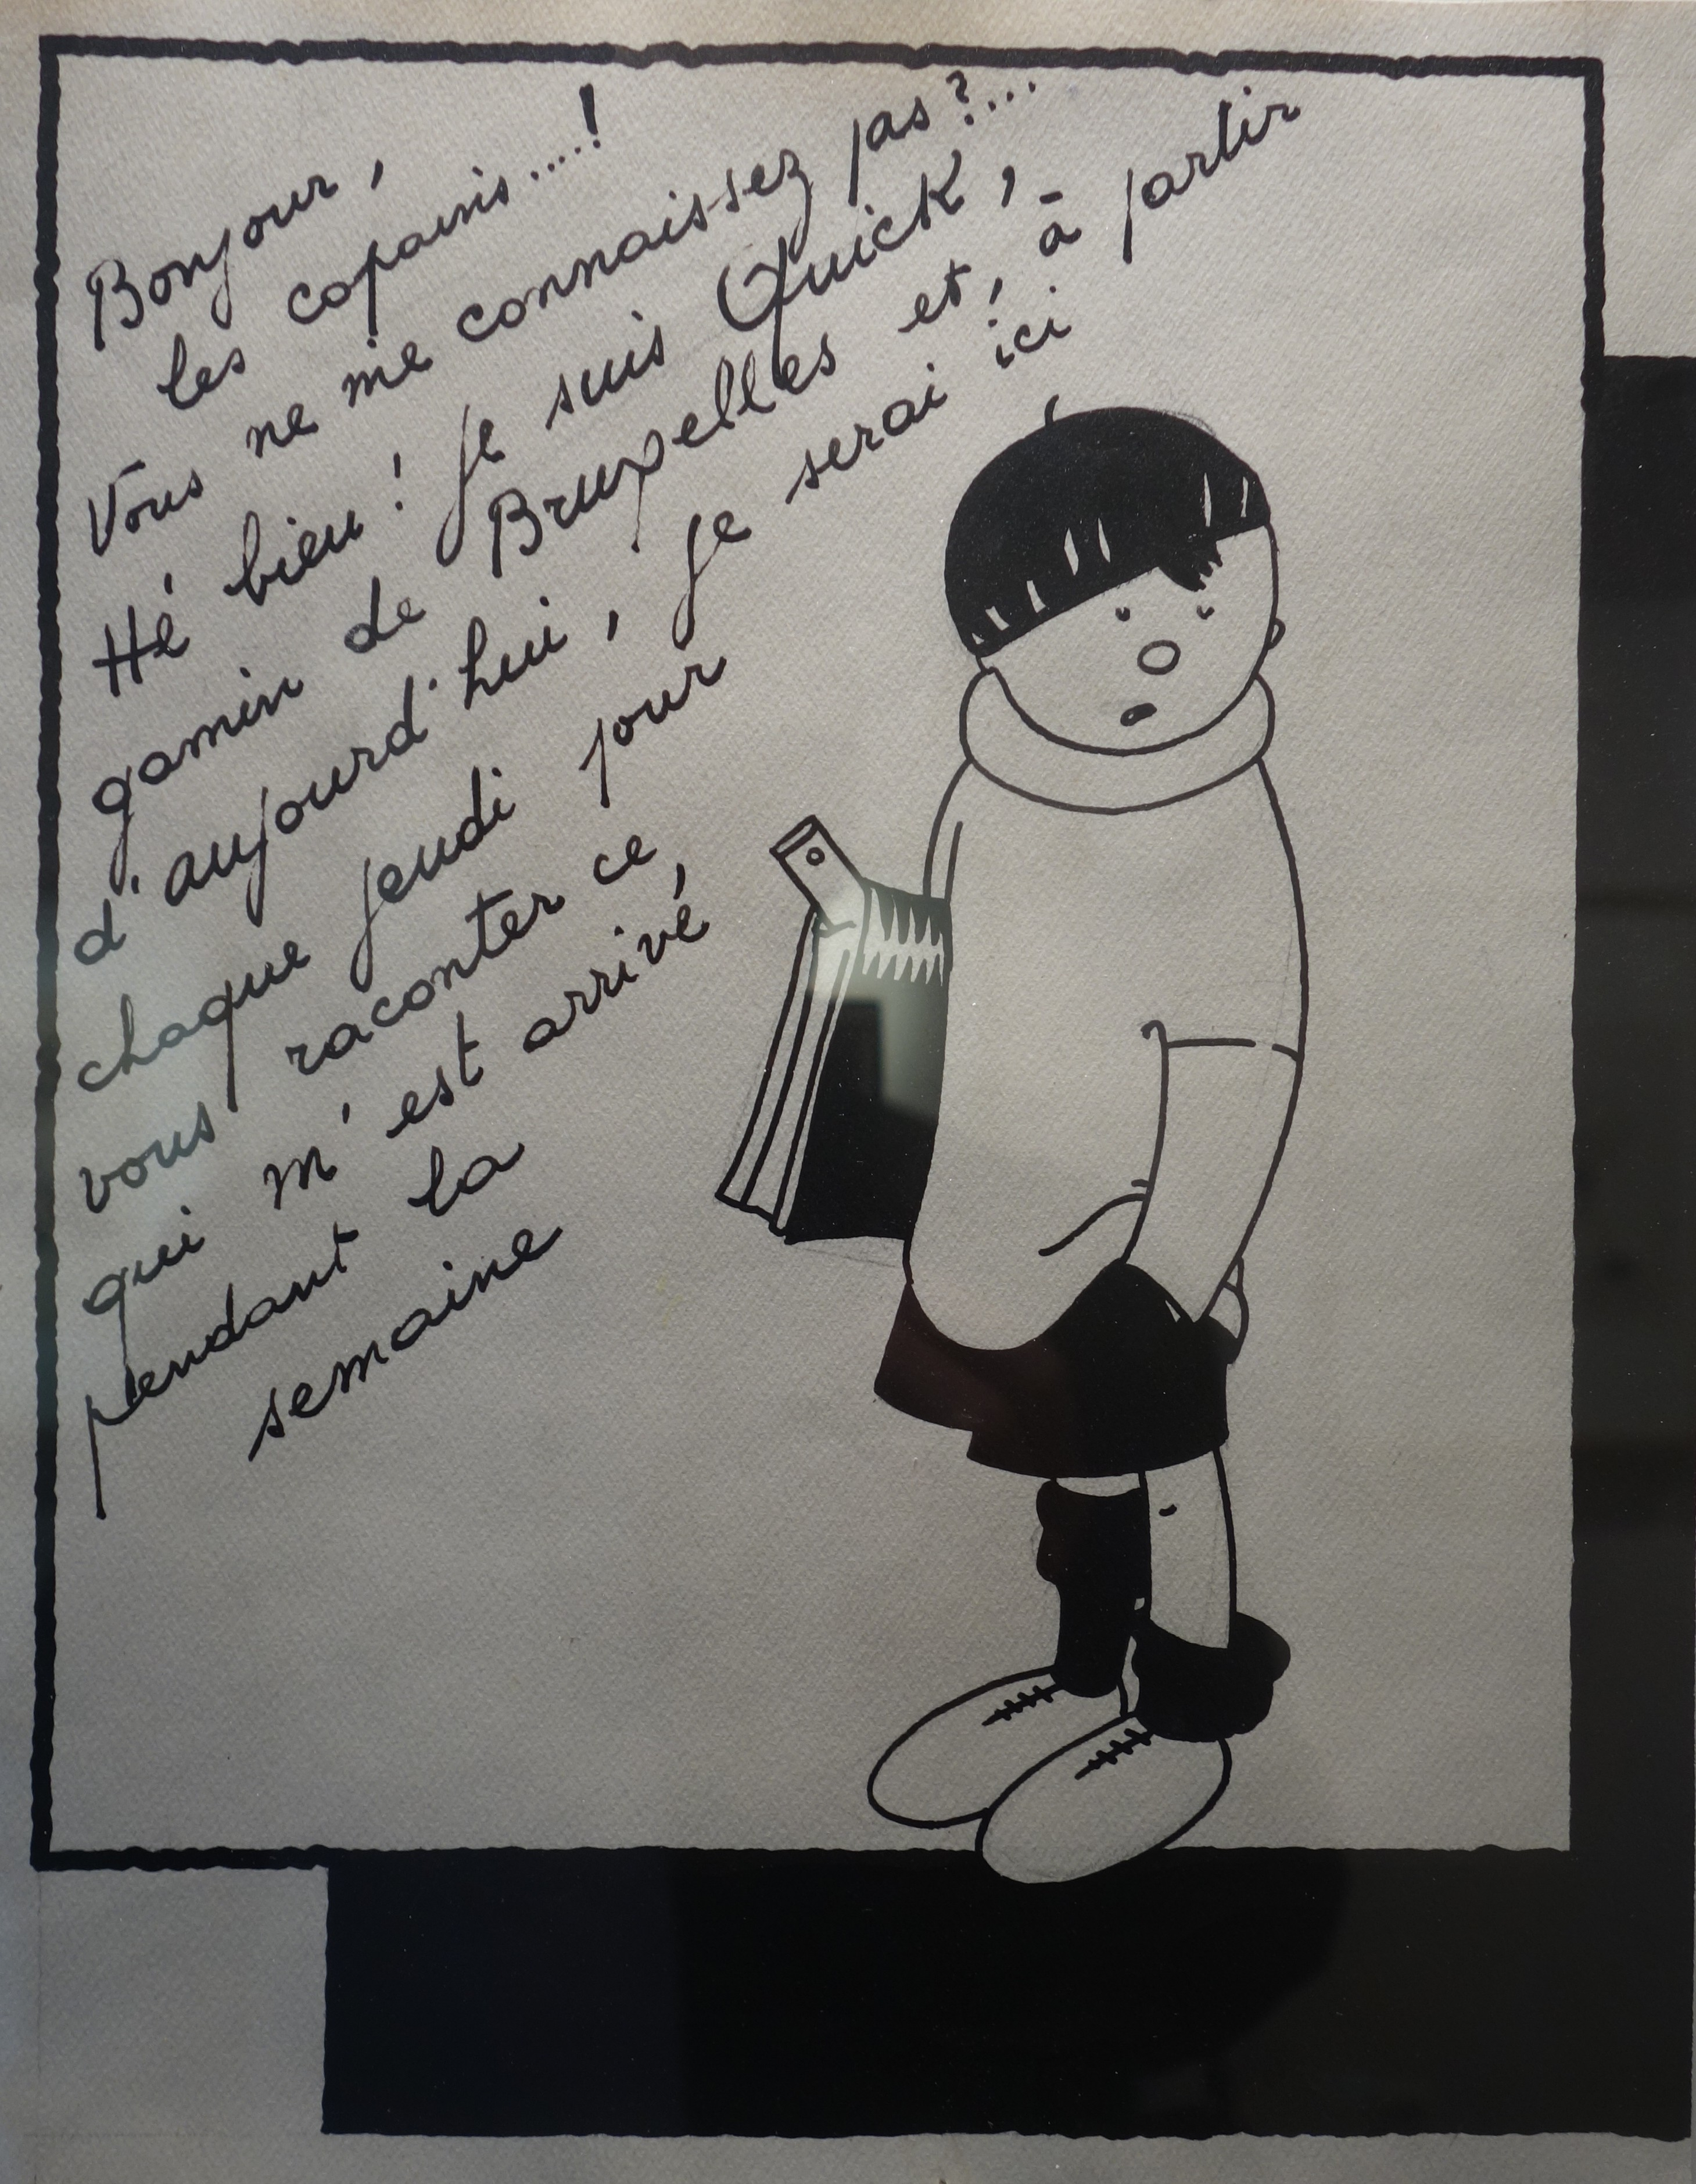 Bonjour,
les copains....!
Vous ne me connaissez pas?...
Hé bien! Je suis Quick,
gamin de Bruxelles et, à partir
d'aujourd'hui, je serai ici
chaque jeudi pour
vous raconter ce
qui m'est arrivé
pendant la
semaine